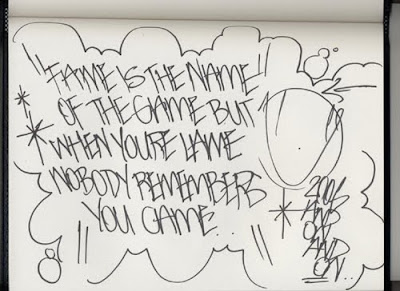 "FAME IS THE NAME"
OF THE GAME BUT
WHEN YOU'RE LAME
NOBODY REMEMBERS
YOU CAME...
2006
AND
ON
AND
ON...